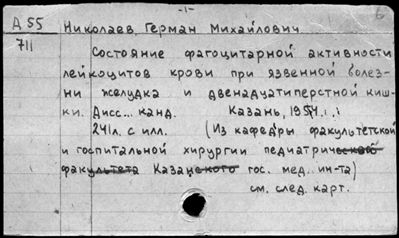 -1-
6
А 55 Николаев, Герман Михайлович
711
Состояние фагоцитарной активности
лейкоцитов крови при язвенной болез-
ни желудка и двенадцатиперстной киш-
ки. Дисс... канд. Казань, 1954.
241л. с илл. (Из кафедры факультетской
и госпитальной хирургии педиатрической
факультета Казанского гос. мед. ин-та)
см. след. карт.